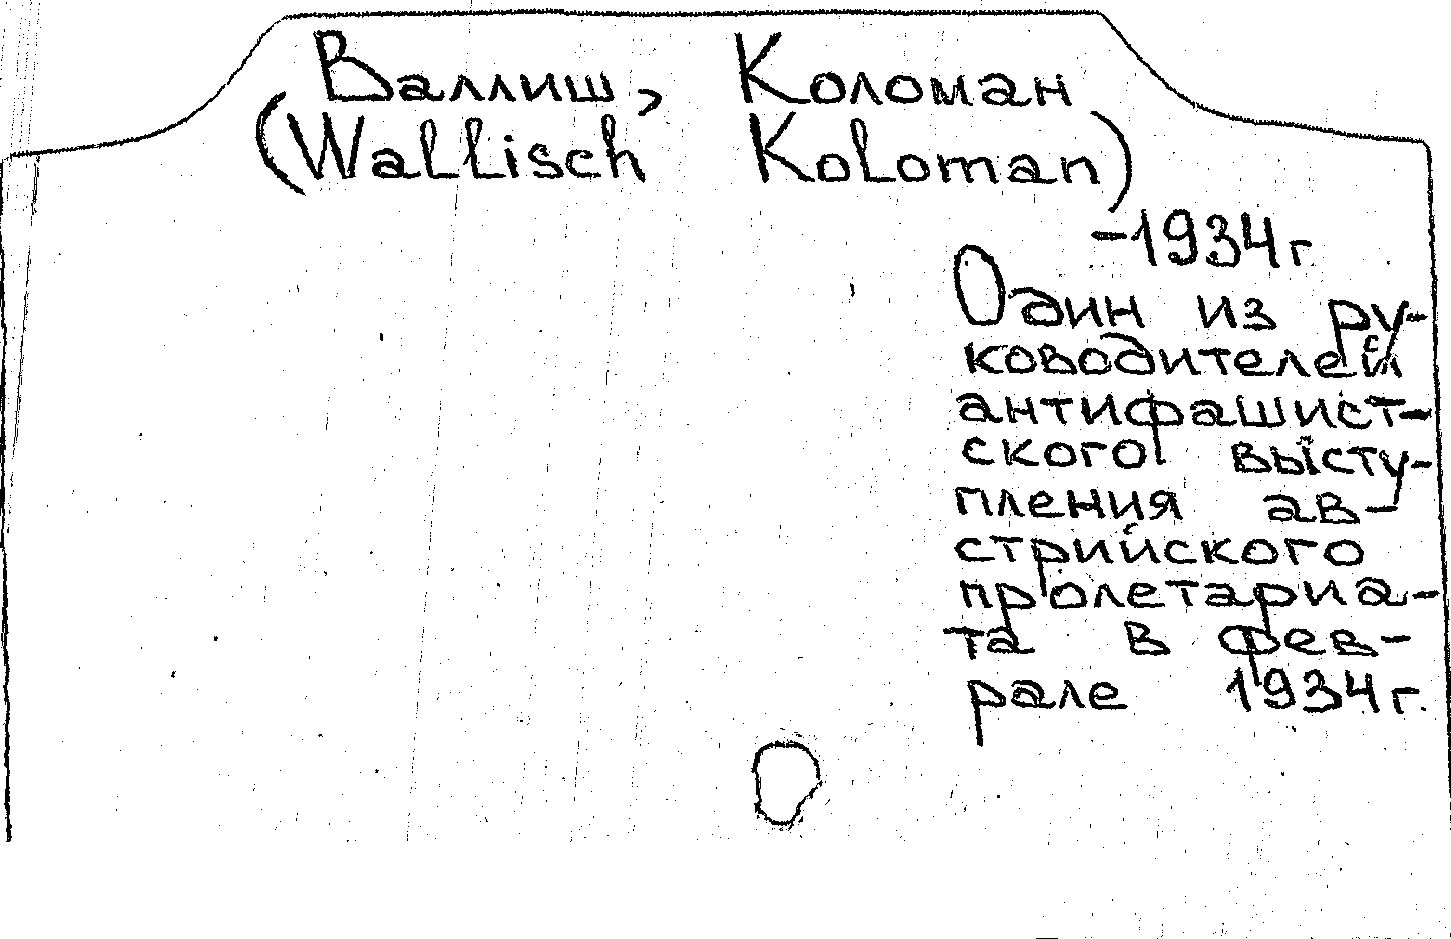 Валлиш, Коломан
(Wallisch Koloman)
-1934г
Один из ру-
ководителей
антифашист-
ского высту-
пления ав-
стрийского
пролетариа-
та в фев-
рале 1934г.